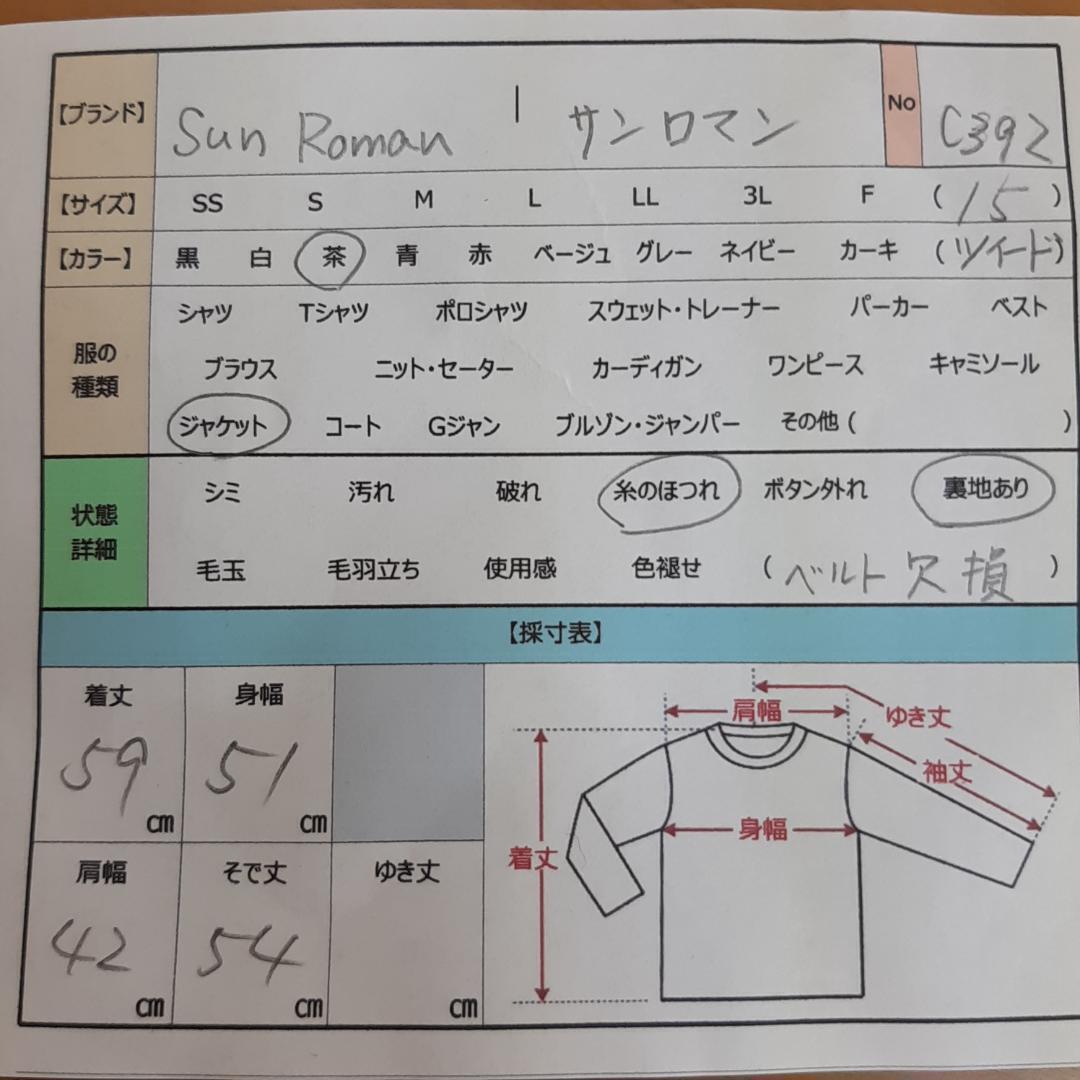 【ブランド】 Sun Roman | サンロマン No C392
【サイズ】 SS S M L LL 3L F (15)
【カラー】 黒 白 茶 青 赤 ベージュ グレー ネイビー カーキ (ツイード)
服の種類
シャツ Tシャツ ポロシャツ スウェット・トレーナー パーカー ベスト
ブラウス ニット・セーター カーディガン ワンピース キャミソール
ジャケット コート Gジャン ブルゾン・ジャンパー その他 ( )
状態詳細
シミ 汚れ 破れ 糸のほつれ ボタン外れ 裏地あり
毛玉 毛羽立ち 使用感 色褪せ (ベルト欠損)
【採寸表】
着丈 身幅
59 cm 51 cm
肩幅 そで丈 ゆき丈
42 cm 54 cm cm
肩幅 ゆき丈
袖丈
身幅
着丈